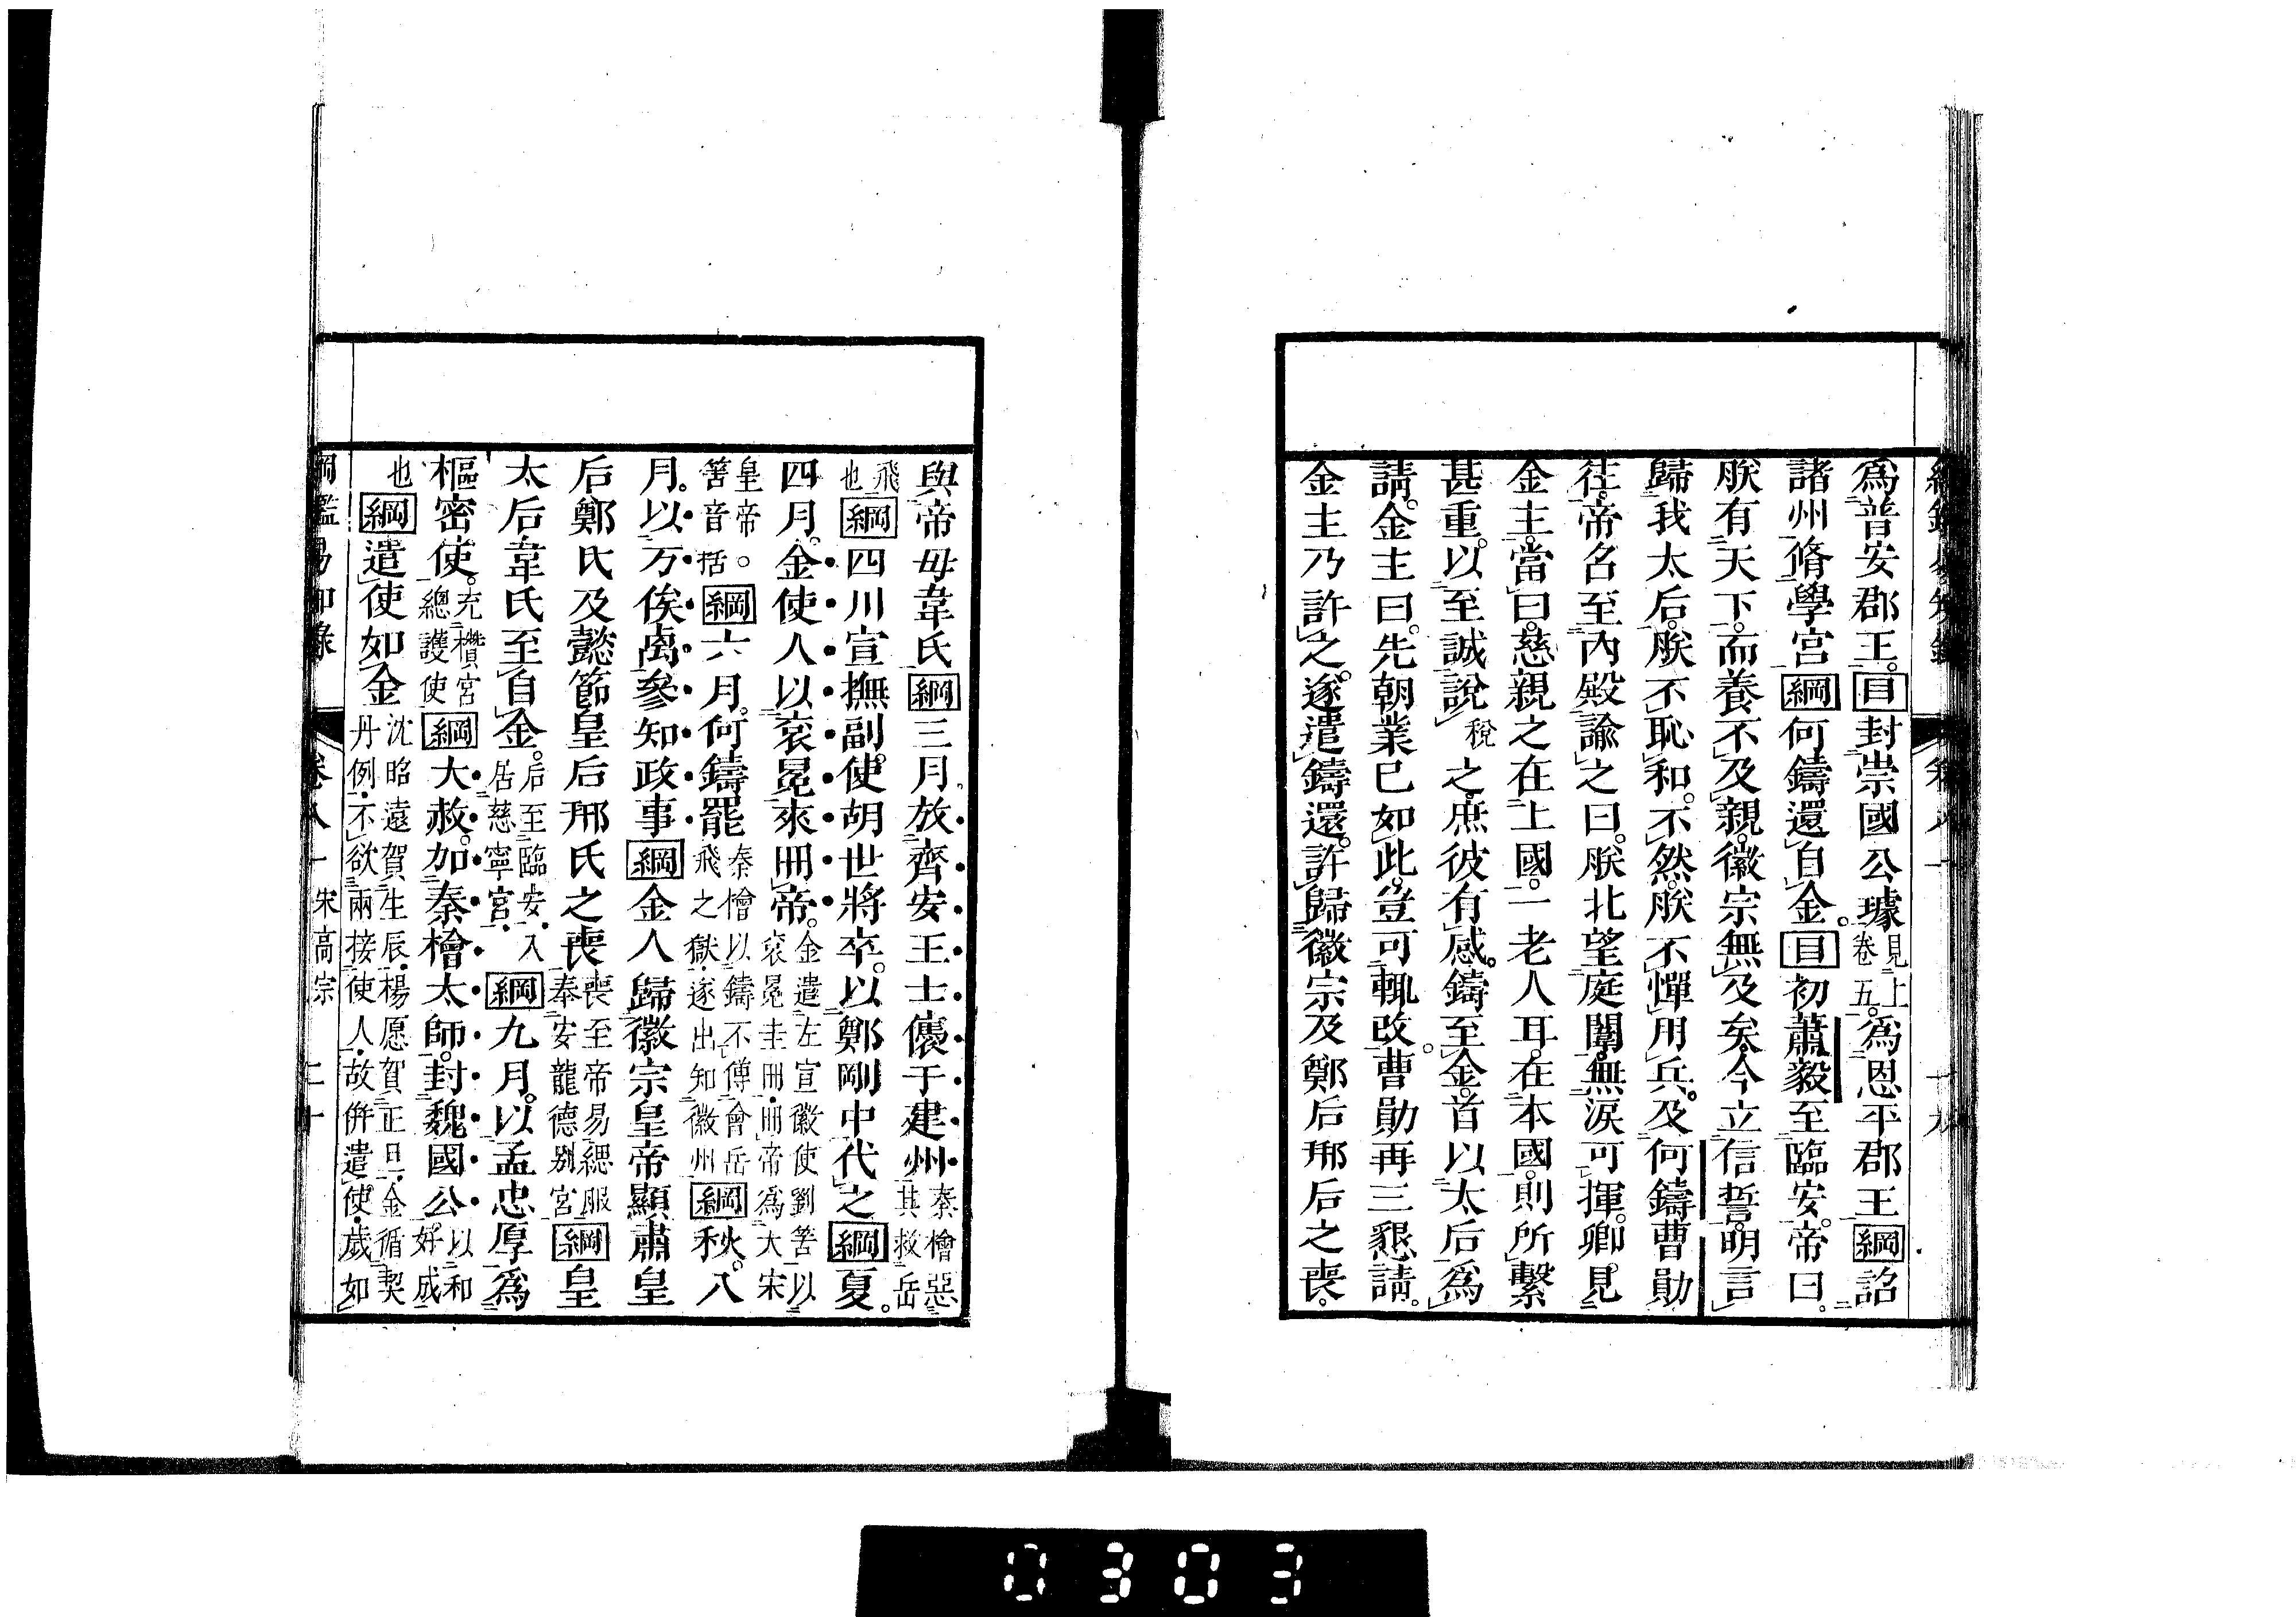 為普安郡王。目封崇國公璩見上卷五。為恩平郡王綱詔
諸州脩學宮綱何鑄還自金。目初蕭毅至臨安。帝曰。
朕有天下。而養不及親。徽宗無及矣。今立信誓。明言
歸我太后。朕不恥和。不然。朕不憚用兵。及何鑄曹勛
往。帝召至內殿諭之曰。朕北望庭闈。無淚可揮。卿見
金主。當曰。慈親之在上國。一老人耳。在本國。則所繫
甚重。以至誠說稅之。庶彼有感。鑄至金。首以太后為
請。金主曰。先朝業已如此。豈可輒改。曹勛再三懇請。
金主乃許之。遂遣鑄還。許歸徽宗及鄭后邢后之喪。
與帝母韋氏綱三月。放齊安王士㒟于建州秦檜惡其救岳
飛也綱四川宣撫副使胡世將卒。以鄭剛中代之綱夏。
四月。金使人以袞冕來冊帝。金遣左宣徽使劉筈以袞冕圭冊。冊帝為大宋
皇帝。筈音括。綱六月。何鑄罷秦檜以鑄不傅會岳飛之獄。遂出知徽州綱秋。八
月。以万俟卨參知政事綱金人歸徽宗皇帝顯肅皇
后鄭氏及懿節皇后邢氏之喪喪至帝易緦服奉安龍德別宮綱皇
太后韋氏至自金。后至臨安。入居慈寧宮。綱九月。以孟忠厚為
樞密使。充欑宮總護使綱大赦。加秦檜太師。封魏國公。以和好成
也綱遣使如金沈昭遠賀生辰。楊愿賀正旦。金循契丹例。不欲兩接使人。故併遣使。歲如
綱鑑易知錄 卷八十 宋高宗 二十
0303